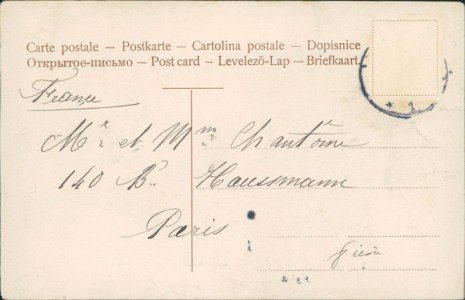 Carte postale – Postkarte – Cartolina postale – Dopisnice
Открытое-письмо – Post card – Levelező-Lap – Briefkaart
France
Mr et Mme Chantôme
140 Bd Haussmann
Paris